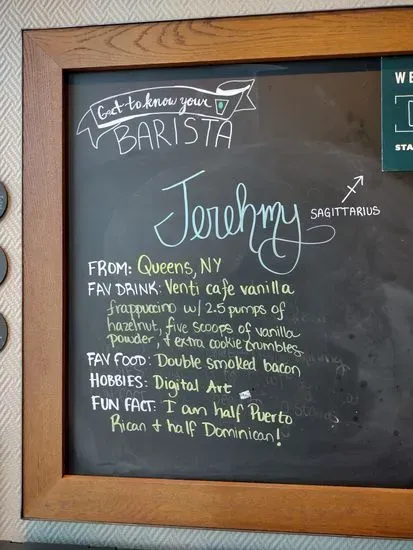 Get to know your
BARISTA
Jerehmy
SAGITTARIUS
FROM: Queens, NY
FAV DRINK: Venti cafe vanilla
frappuccino w/ 2.5 pumps of
hazelnut, five scoops of vanilla
powder, + extra cookie crumbles
FAV FOOD: Double smoked bacon
HOBBIES: Digital Art
FUN FACT: I am half Puerto
Rican + half Dominican!
WE
STA